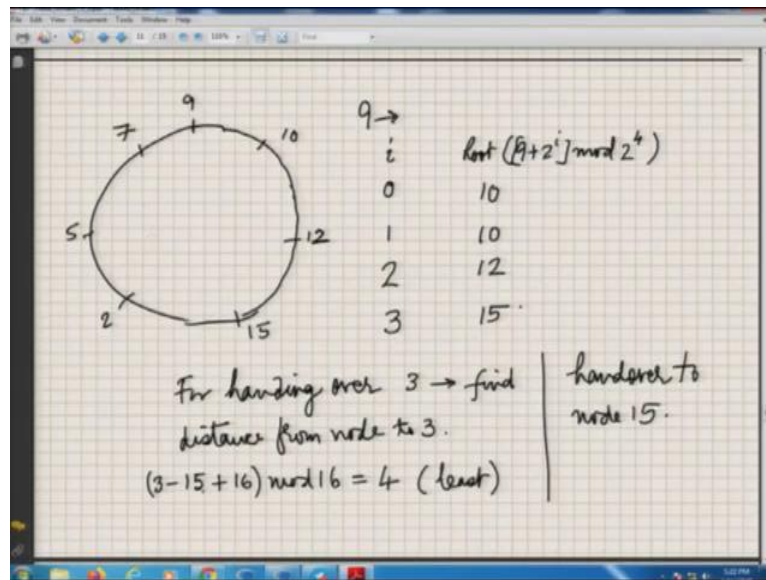 File Edit View Document Tools Window Help
9
7
10
5
12
2
15
9→
i Root ([9+2^i] mod 2^4)
0 10
1 10
2 12
3 15
For handing over 3 → find
distance from node to 3.
(3-15+16) mod 16 = 4 (least)
handover to
node 15.
5:22 PM